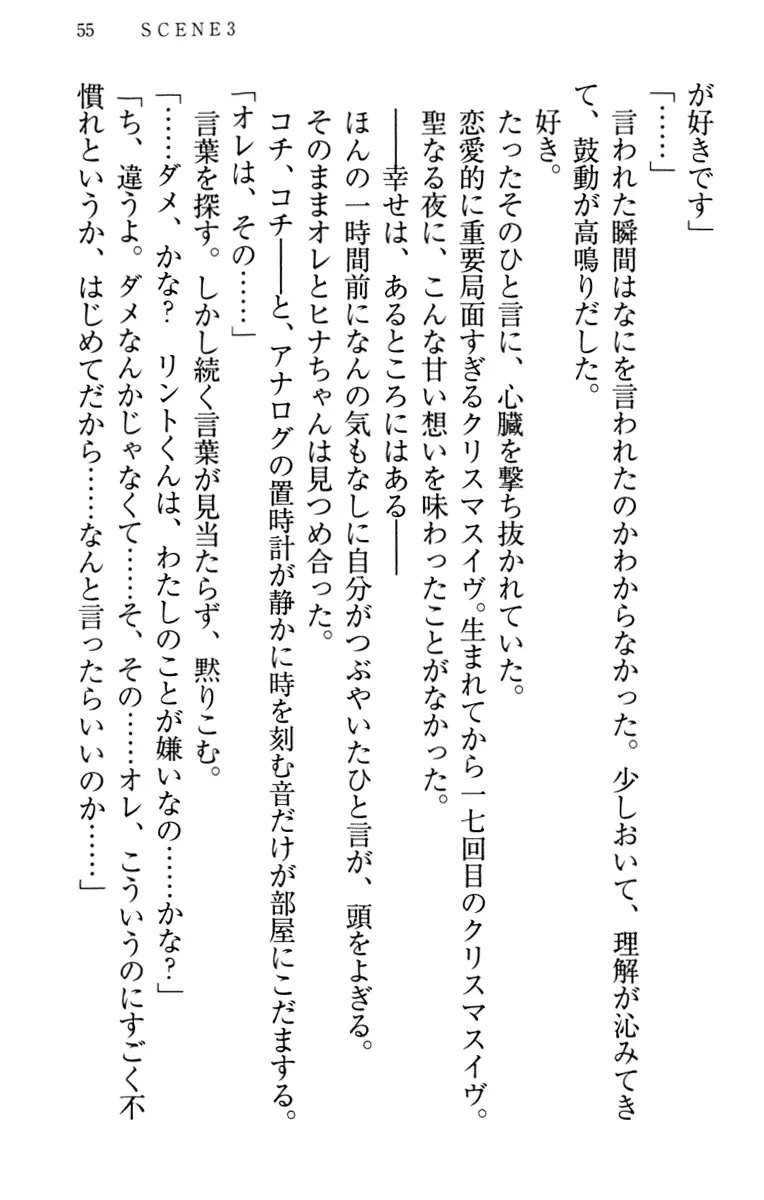 55 SCENE3
が好きです」
「……」
　言われた瞬間はなにを言われたのかわからなかった。少しおいて、理解が沁みてき
て、鼓動が高鳴りだした。
好き。
たったそのひと言に、心臓を撃ち抜かれていた。
恋愛的に重要局面すぎるクリスマスイヴ。生まれてから一七回目のクリスマスイヴ。
聖なる夜に、こんな甘い想いを味わったことがなかった。
――幸せは、あるところにはある――
ほんの一時間前になんの気もなしに自分がつぶやいたひと言が、頭をよぎる。
そのままオレとヒナちゃんは見つめ合った。
コチ、コチ――と、アナログの置時計が静かに時を刻む音だけが部屋にこだまする。
「オレは、その……」
　言葉を探す。しかし続く言葉が見当たらず、黙りこむ。
「……ダメ、かな？　リントくんは、わたしのことが嫌いなの……かな？」
「ち、違うよ。ダメなんかじゃなくて……そ、その……オレ、こういうのにすごく不
慣れというか、はじめてだから……なんと言ったらいいのか……」